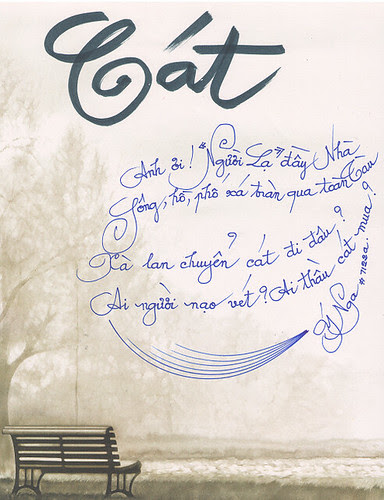 Cát
Anh ơi! "Người Lạ" đầy Nhà
Sông, hồ, phố xá tràn qua toàn Tàu
Xà lan chuyển cát đi đâu?
Ai người nạo vét? Ai thầu cát mua?
Ý Nga